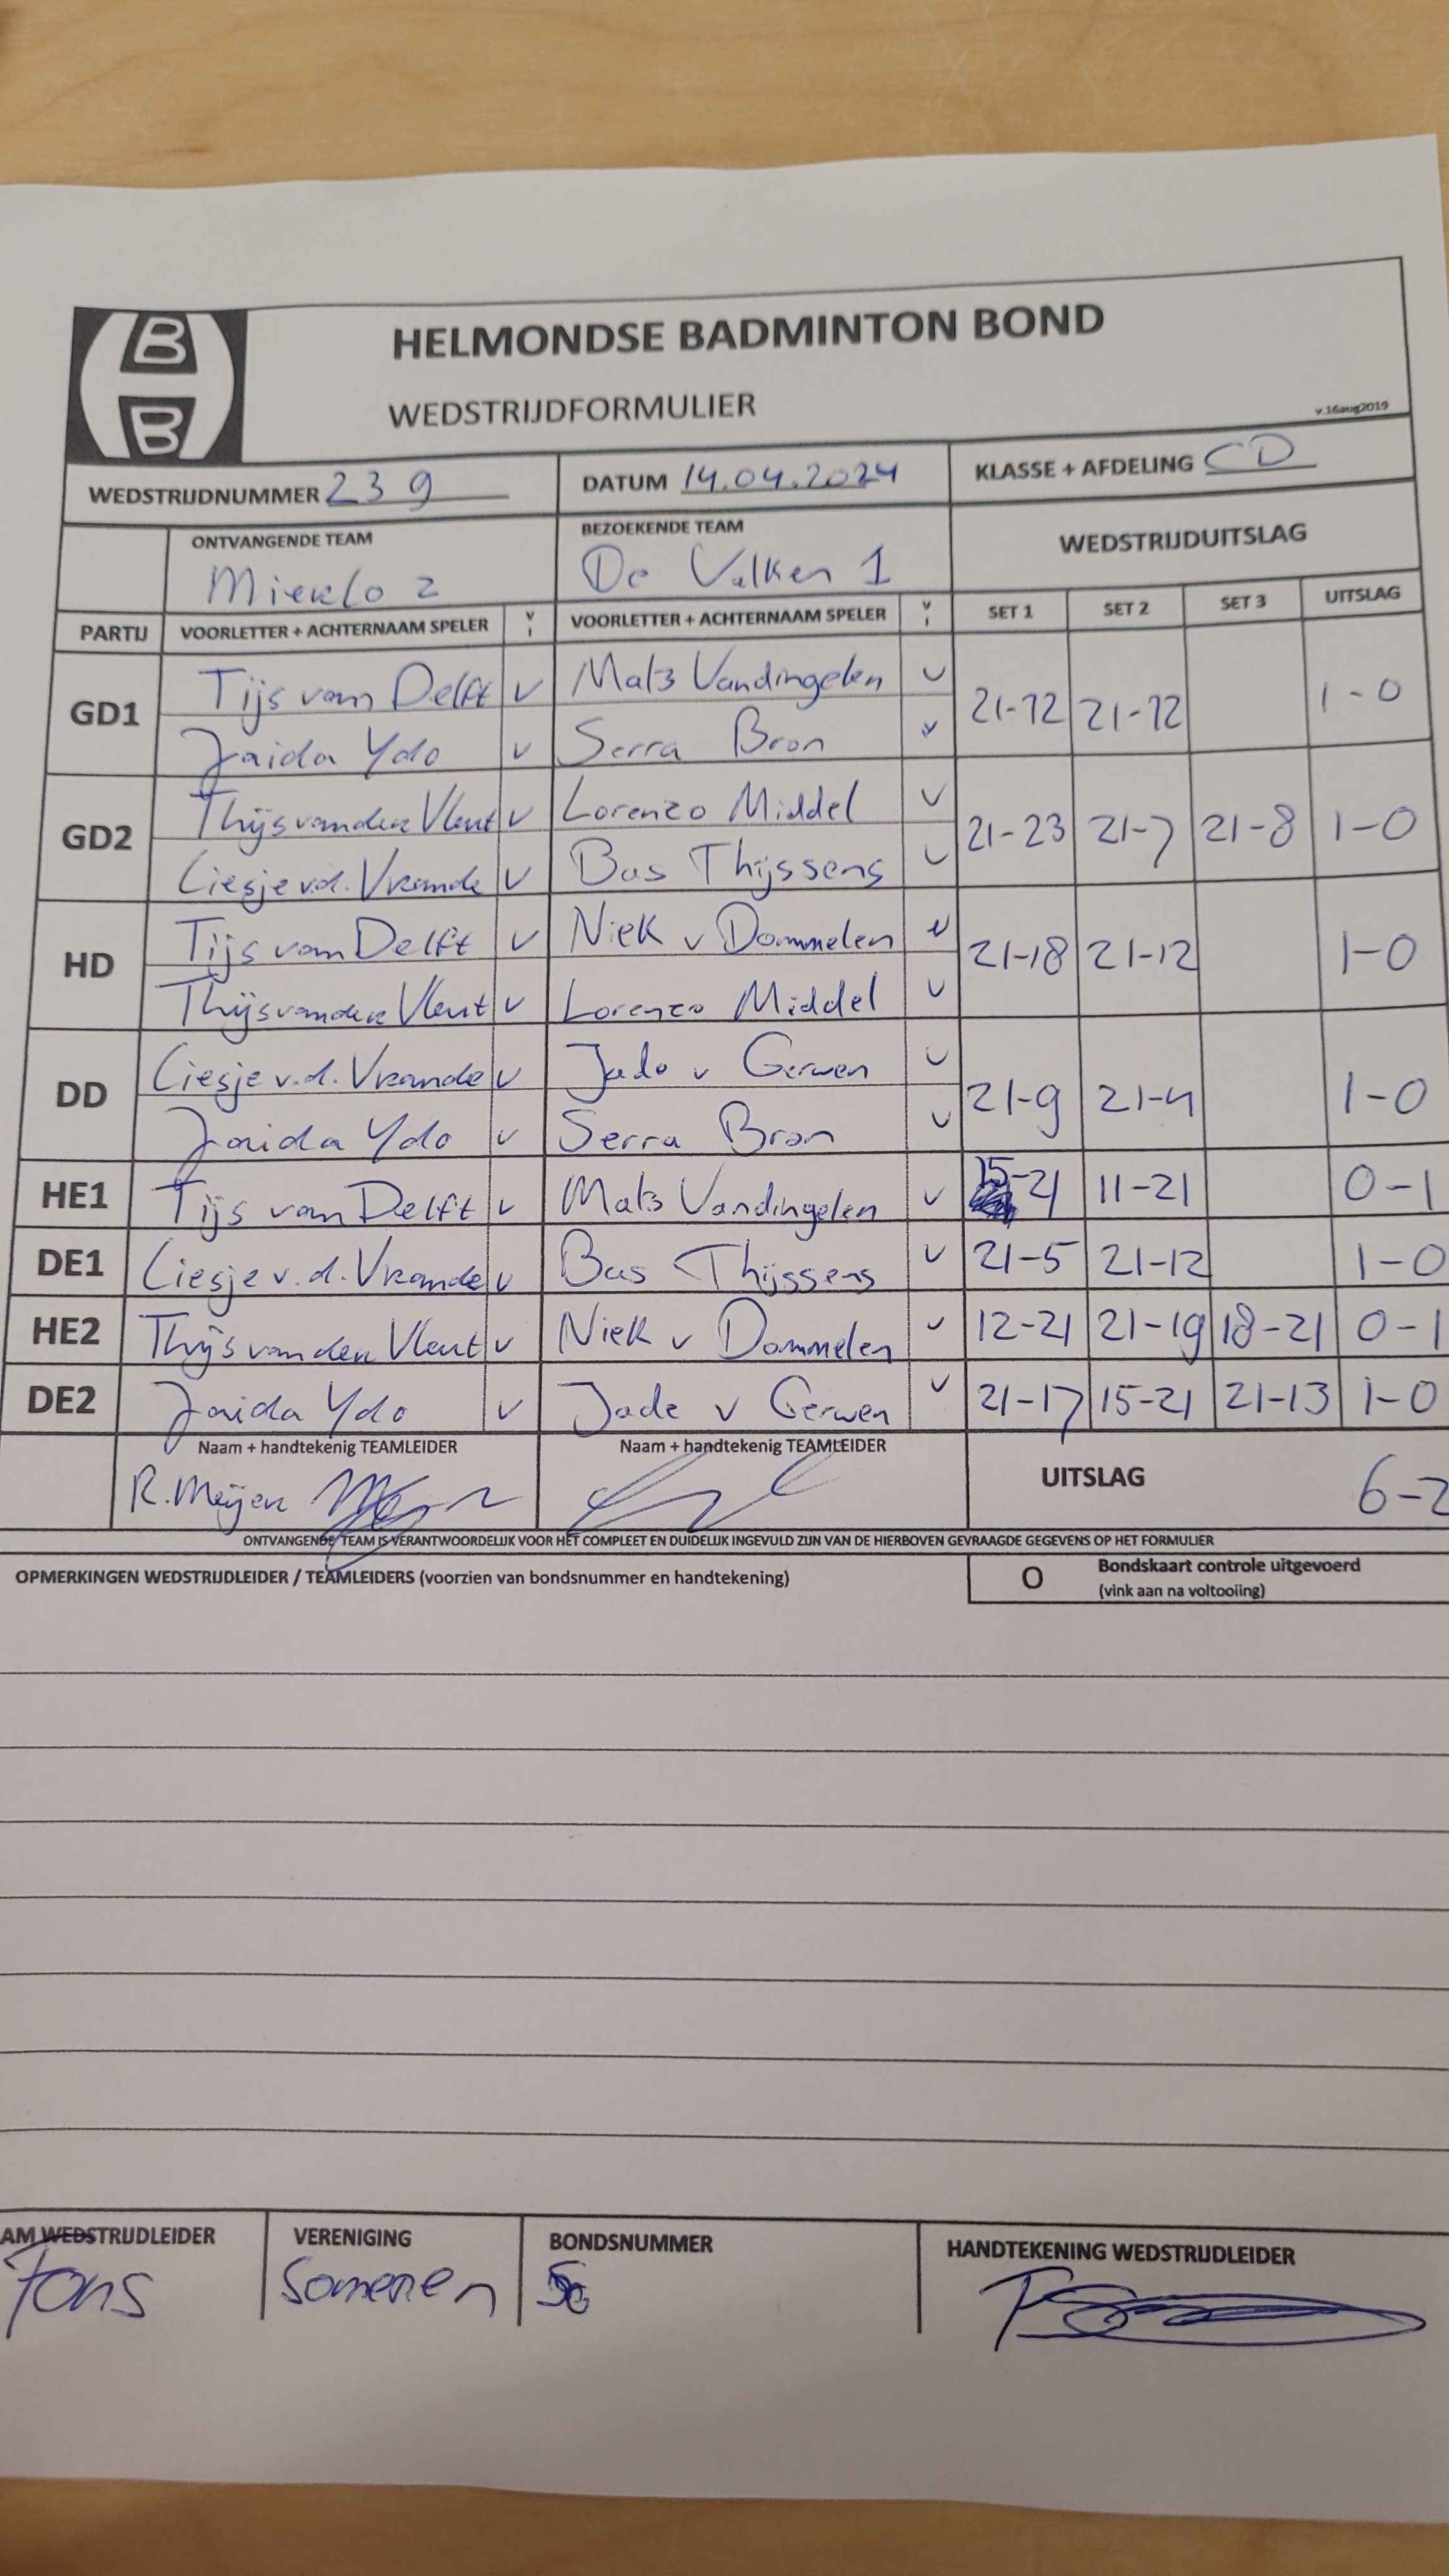 B
B
HELMONDSE BADMINTON BOND
WEDSTRIJDFORMULIER
v.16aug2019
WEDSTRIJDNUMMER 239 DATUM 14.04.2024 KLASSE + AFDELING CD
ONTVANGENDE TEAM BEZOEKENDE TEAM WEDSTRIJDUITSLAG
Mierlo 2 De Valken 1
PARTIJ VOORLETTER + ACHTERNAAM SPELER v i VOORLETTER + ACHTERNAAM SPELER v i SET 1 SET 2 SET 3 UITSLAG
GD1 Tijs van Delft v Mats Vandingelen v 21-12 21-12 1-0
Jaida Ydo v Serra Bron v
GD2 Thijs van der Vleut v Lorenzo Middel v 21-23 21-7 21-8 1-0
Liesje v.d. Vrande v Bas Thijssens v
HD Tijs van Delft v Niek v Dommelen v 21-18 21-12 1-0
Thijs van der Vleut v Lorenzo Middel v
DD Liesje v.d. Vrande v Jade v Gerwen v 21-9 21-4 1-0
Jaida Ydo v Serra Bron v
HE1 Tijs van Delft v Mats Vandingelen v 15-21 11-21 0-1
DE1 Liesje v.d. Vrande v Bas Thijssens v 21-5 21-12 1-0
HE2 Thijs van der Vleut v Niek v Dommelen v 12-21 21-19 18-21 0-1
DE2 Jaida Ydo v Jade v Gerwen v 21-17 15-21 21-13 1-0
Naam + handtekenig TEAMLEIDER Naam + handtekenig TEAMLEIDER
R. Meijer UITSLAG 6-2
ONTVANGENDE TEAM IS VERANTWOORDELIJK VOOR HET COMPLEET EN DUIDELIJK INGEVULD ZIJN VAN DE HIERBOVEN GEVRAAGDE GEGEVENS OP HET FORMULIER
OPMERKINGEN WEDSTRIJDLEIDER / TEAMLEIDERS (voorzien van bondsnummer en handtekening) O Bondskaart controle uitgevoerd
(vink aan na voltooiing)
AM WEDSTRIJDLEIDER VERENIGING BONDSNUMMER HANDTEKENING WEDSTRIJDLEIDER
Fons Someren